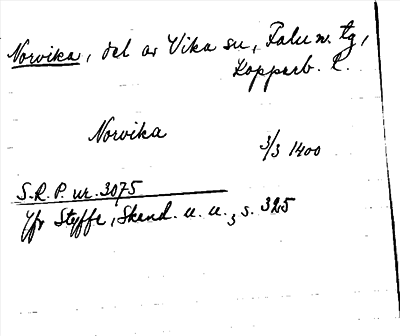 Norvika, del av Vika sn, Falu n. tg,
Kopparb. l.
Norvika
3/3 1400
S.R.P. nr. 3075
Jfr Styffe, Skand. u. u., s. 325